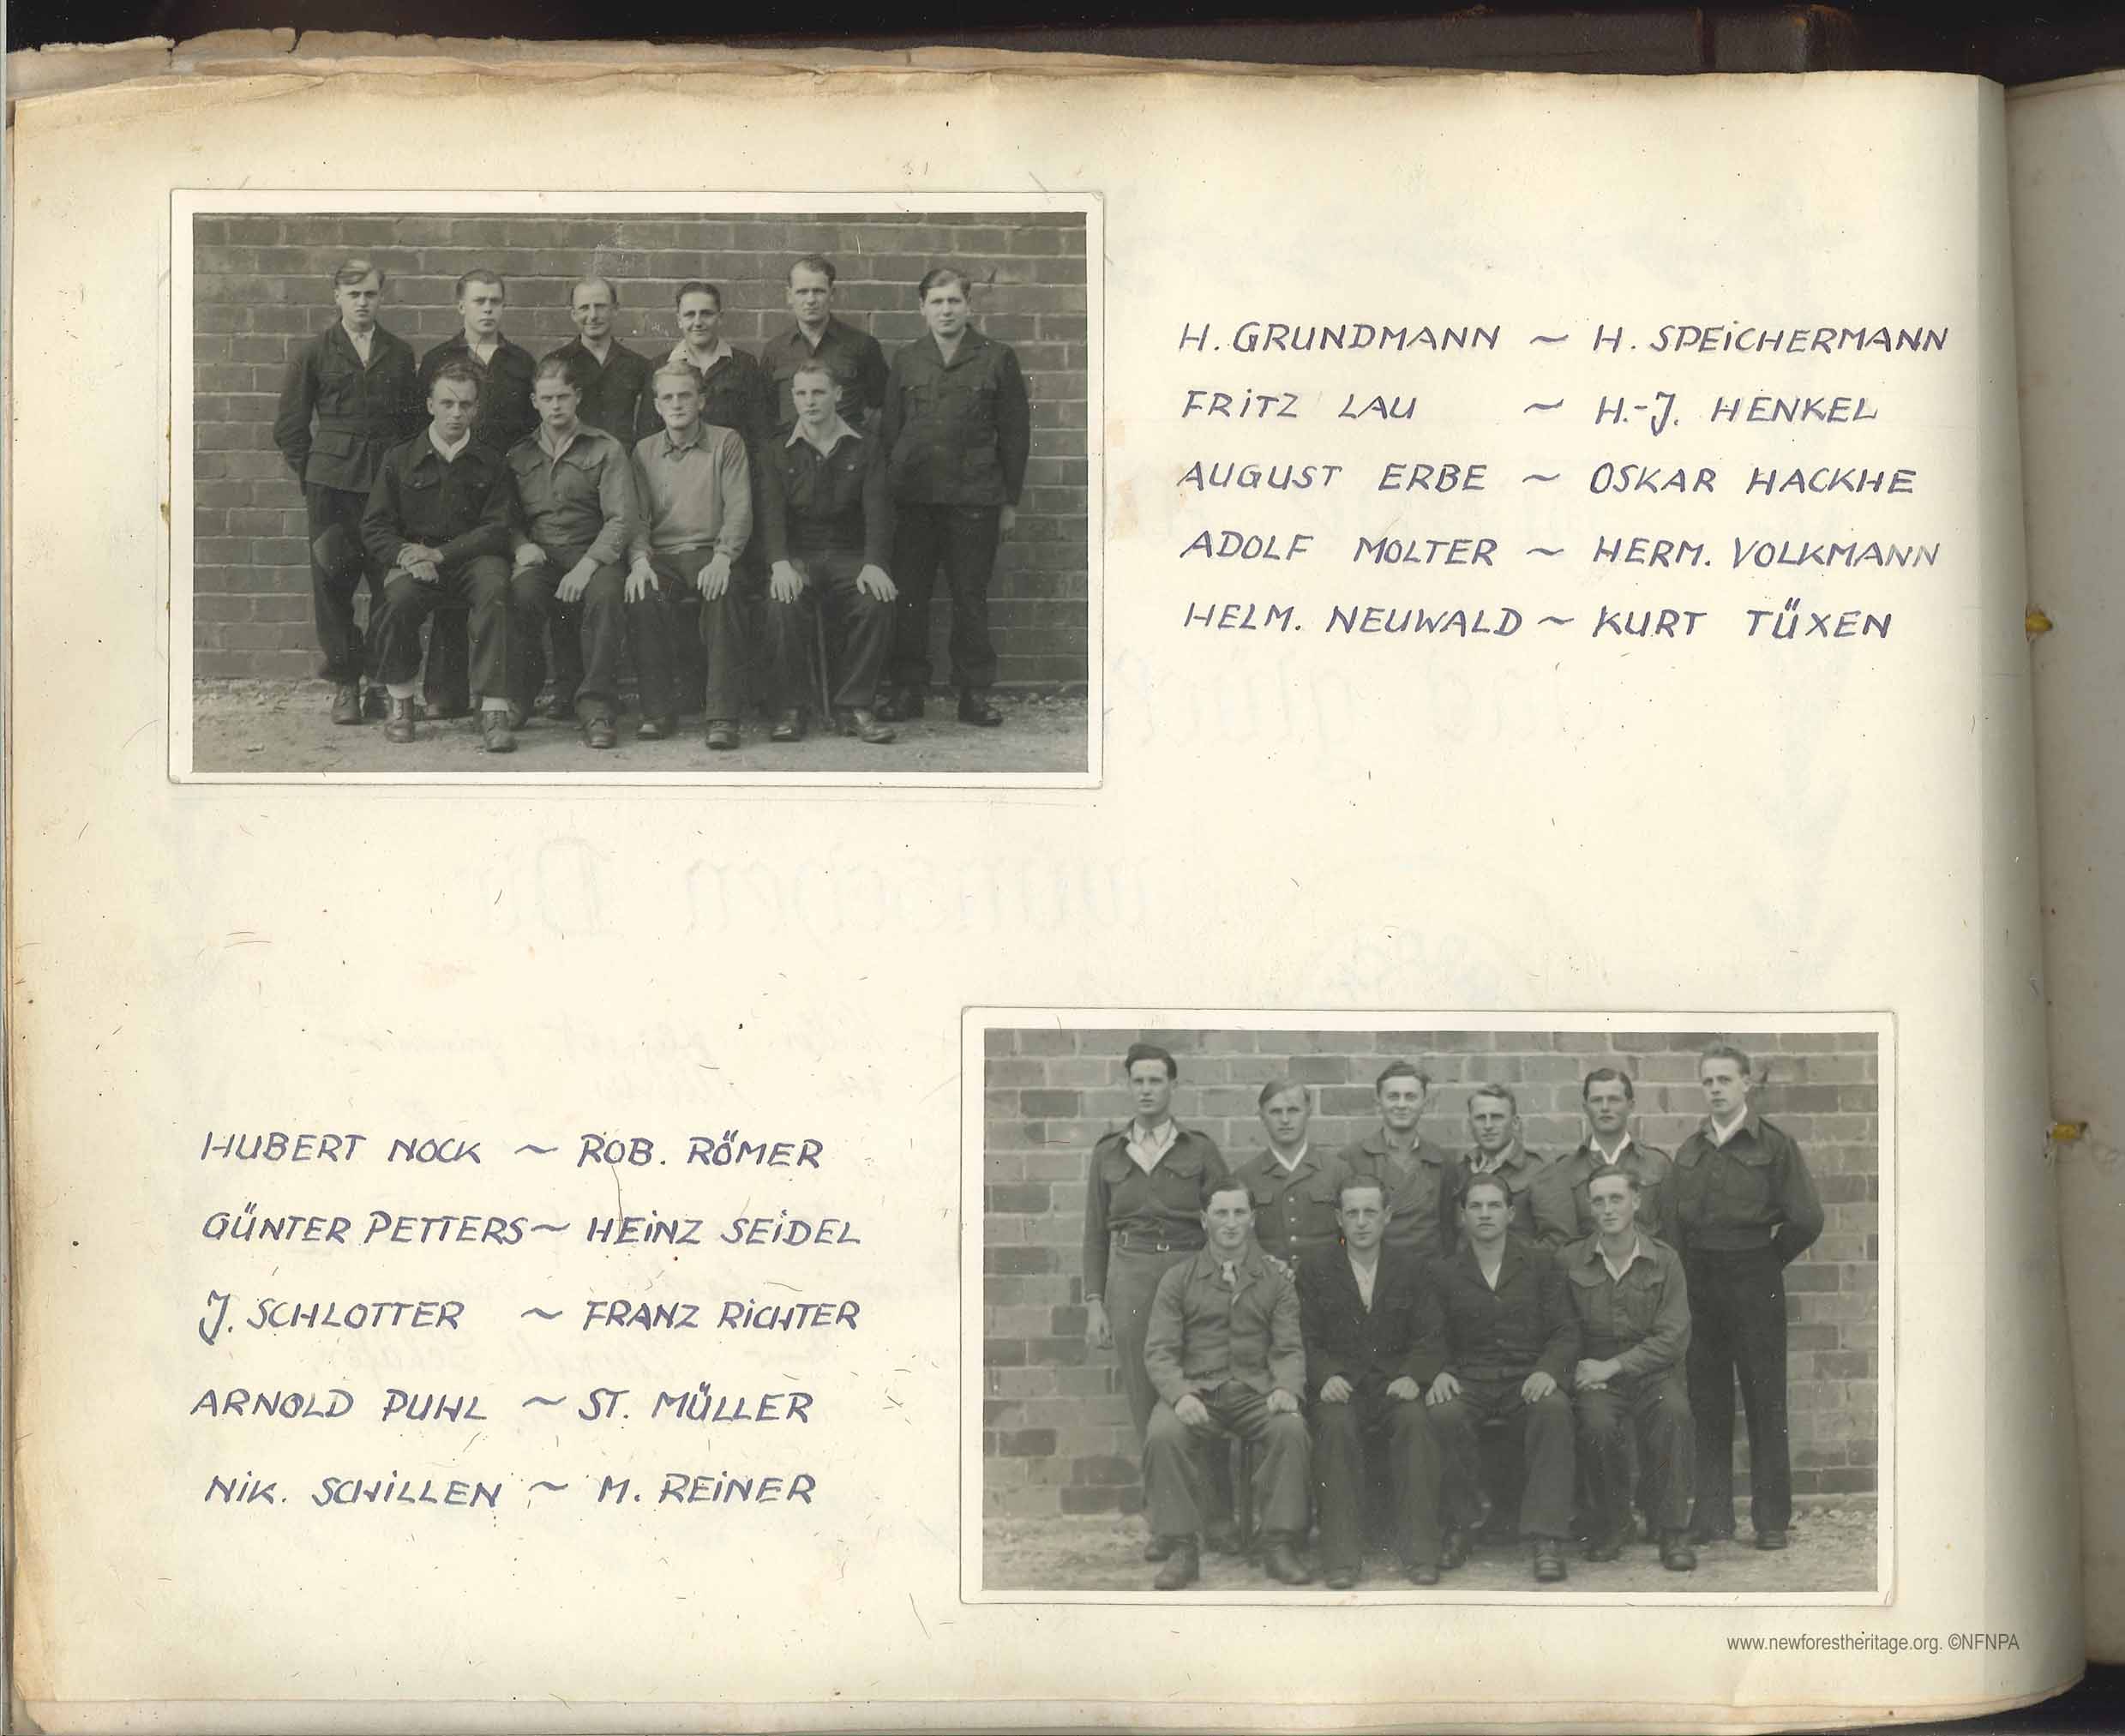 H. GRUNDMANN ~ H. SPEiCHERMANN
FRiTZ LAU ~ H.-J. HENKEL
AUGUST ERBE ~ OSKAR HACKHE
ADOLF MOLTER ~ HERM. VOLKMANN
HELM. NEUWALD ~ KURT TÜXEN
HUBERT NOCK ~ ROB. RÖMER
GÜNTER PETTERS ~ HEiNZ SEiDEL
J. SCHLOTTER ~ FRANZ RiCHTER
ARNOLD PUHL ~ ST. MÜLLER
NiK. SCHiLLEN ~ M. REiNER
www.newforestheritage.org. ©NFNPA